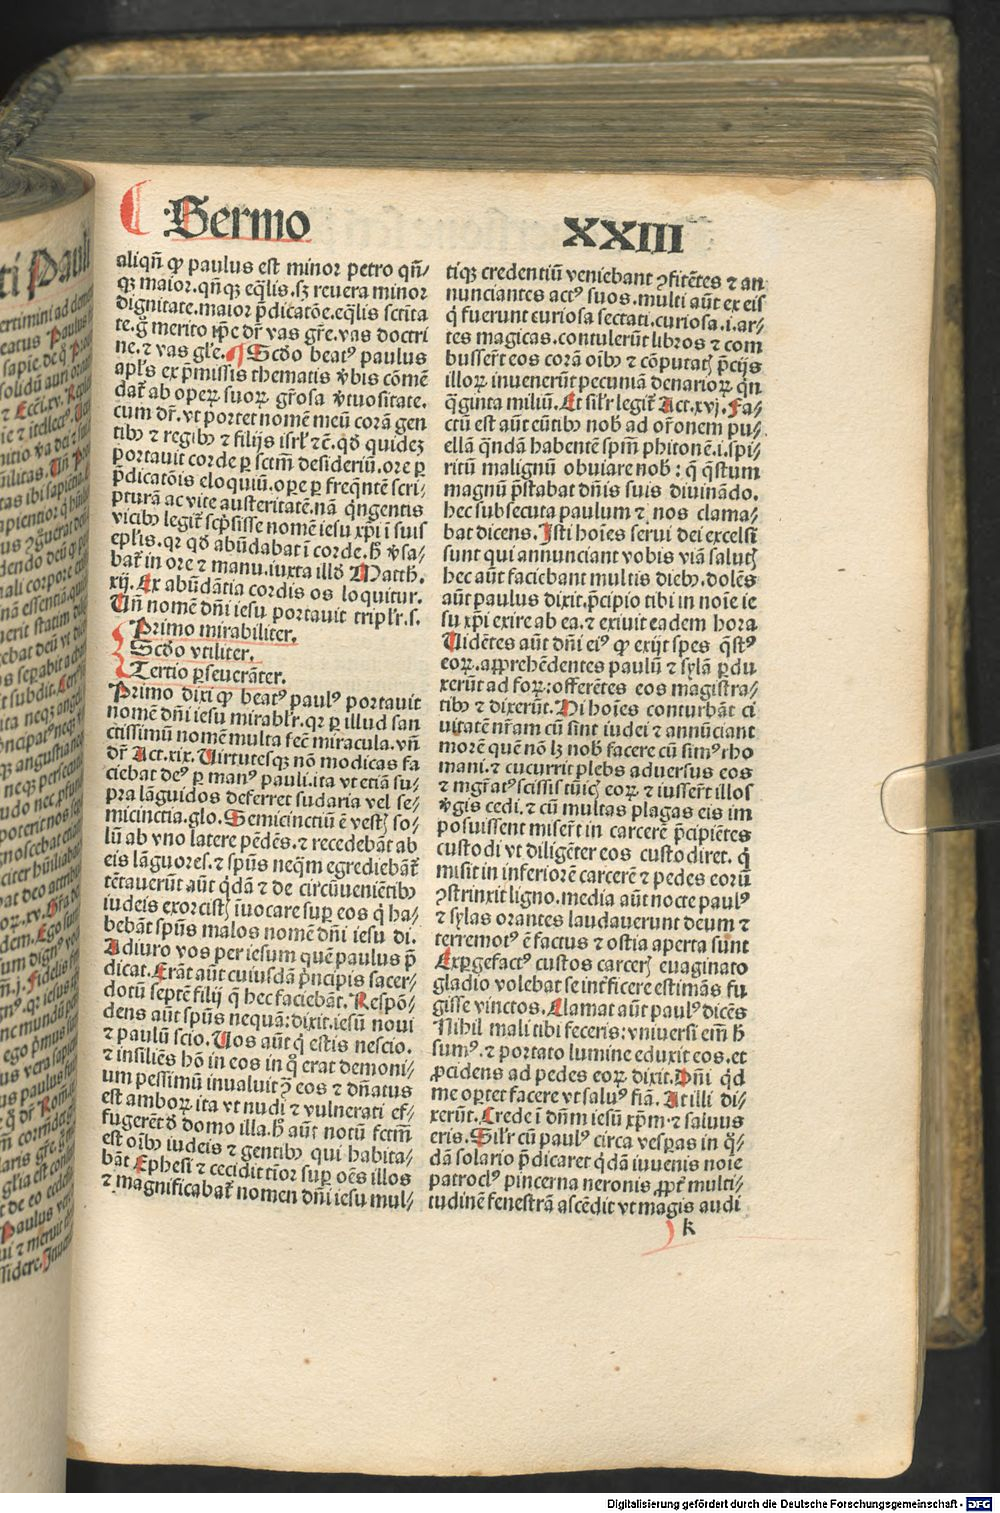 Sermo XXIII
aliqñ ꝙ paulus est minor petro qñ/
qꝫ maior.qñqꝫ eq̄lis.sꝫ reuera minor
dignitate.maior p̄dicatōe.eq̄lis sc̄tita
te.g̊ merito ip̄e dr̄ vas gr̄e.vas doctri
ne.⁊ vas gl̄e. Scd̓o beatꝰ paulus
apl̄s ex p̄missis thematis v̓bis cōmē
dat̄ ab operꝫ suoꝝ gr̄osa v̓tuositate.
cum dr̄.vt portet nomē meū corā gen
tibꝰ ⁊ regibꝰ ⁊ filijs isrl̄ ⁊c̄.qd̓ quideꝫ
portauit corde ꝑ sctm̄ desideriū.ore ꝑ
p̄dicatōis eloquiū.oꝑe ꝑ freq̄ntē scri/
pturā ac vite austeritatē.nā q̇ngentis
vicibꝰ legit̄ scp̄sisse nomē iesu xp̄i ī suis
epl̄is.qꝛ qd̓ abūdabat ī corde.h̄ v̓sa/
bat̄ in ore ⁊ manu.iuxta illd̓ Matth̄.
xij. Ex abūdātia cordis os loquitur.
Vñ nomē dñi iesu portauit triplr̄.s.
Primo mirabiliter.
Scd̓o vtiliter.
Tertio ꝑseuerāter.
Primo dixi ꝙ beatꝰ paulꝰ portauit
nomē dñi iesu mirablr̄.qꝛ ꝑ illud san
ctissimū nomē multa fec̄ miracula.vñ
dr̄ Act.xix. Uirtutesqꝫ nō modicas fa
ciebat deꝰ ꝑ manꝰ pauli.ita vt etiā su/
pra lāguidos deferret sudaria vel se/
micinctia.glo. Semicinctiū ē vestꝭ so/
lū ab vno latere pēdēs.⁊ recedebāt ab
eis lāguores.⁊ spūs neq̄m egrediebāt̄
tētauerūt aūt q̇dā ⁊ de circūueniētibꝰ
iudeis exorcistꝭ īuocare suꝑ eos q̇ ha/
bebāt spūs malos nomē dñi iesu di.
Adiuro vos per iesum quē paulus p̄
dicat. Erāt aūt cuiusdā p̄ncipis sacer/
dotū septē filij q̇ hec faciebāt. Respō/
dens aūt spūs nequā:dixit.iesū noui
⁊ paulū scio. Uos aūt q̇ estis nescio.
⁊ insiliēs hō in eos in q̊ erat demoni/
um pessimū inualuit ꝯ̄ eos ⁊ dñatus
est amboꝝ ita vt nudi ⁊ vulnerati ef/
fugerēt d̓ domo illa.h̄ aūt notū fctm̄
est oībꝰ iudeis ⁊ gentibꝰ qui habita/
bāt Ephesi ⁊ cecidit tīor suꝑ oēs illos
⁊ magnificabat̄ nomen dñi iesu mul/
tiqꝫ credentiū veniebant ꝯfitētes ⁊ an
nunciantes actꝰ suos.multi aūt ex eis
q̇ fuerunt curiosa sectati.curiosa.i.ar/
tes magicas.contulerūt libros ⁊ com
busser̄t eos corā oībꝰ ⁊ cōputatꝭ p̄cijs
illoꝝ inuenerūt pecuniā denarioꝝ q̇n
q̄ginta miliū. Et silr̄ legit̄ Act.xvj. Fa/
ctū est aūt eūtibꝰ nob̄ ad or̄onem pu/
ellā q̄ndā habentē spm̄ phitonē.i.spi/
ritū malignū obuiare nob̄: q̄ q̄stum
magnū p̄stabat dñis suis diuinādo.
hec subsecuta paulum ⁊ nos clama/
bat dicens. Isti hoīes serui dei excelsi
sunt qui annunciant vobis viā salutꝭ
hec aūt faciebant multis diebꝰ.dolēs
aūt paulus dixit.p̄cipio tibi in noīe ie
su xp̄i exire ab ea.⁊ exiuit eadem hora
Uidētes aūt dñi eiꝰ ꝙ exijt spes q̄stꝰ
eoꝝ.apprehēdentes paulū ⁊ sylā ꝑdu
xerūt ad foꝝ:offerētes eos magistra/
tibꝰ ⁊ dixerūt. Hi hoīes conturbāt ci
uitatē nr̄am cū sint iudei ⁊ annūciant
morē quē nō lꝫ nob̄ facere cū simꝰ rho
mani.⁊ cucurrit plebs aduersus eos
⁊ mgr̄atꝰ scissis tūicꝭ eoꝝ ⁊ iusser̄t illos
v̓gis cedi.⁊ cū multas plagas eis im
posuissent miser̄t in carcerē p̄cipiētes
custodi vt diligēter eos custodiret. q̇
misit in inferiorē carcerē ⁊ pedes eorū
ꝯstrinxit ligno.media aūt nocte paulꝰ
⁊ sylas orantes laudauerunt deum ⁊
terremotꝰ ē factus ⁊ ostia aperta sunt
Exꝑgefactꝰ custos carcerꝭ euaginato
gladio volebat se int̓ficere estimās fu
gisse vinctos. Clamat aūt paulꝰ dicēs
Nihil mali tibi feceris:vniuersi em̄ h̄
sumꝰ.⁊ portato lumine eduxit eos.et
ꝓcidens ad pedes eoꝝ dixit. Dñi q̇d
me oꝑtet facere vt saluꝰ fiā. At illi di/
xerūt. Crede ī dñm iesū xp̄m ⁊ saluus
eris. Silr̄ cū paulꝰ circa vesꝑas in q̇/
dā solario p̄dicaret q̇dā iuuenis noīe
patroclꝰ pincerna neronis ꝓpt̄ multi/
tudinē fenestrā ascēdit vt magis audi
k
Digitalisierung gefördert durch die Deutsche Forschungsgemeinschaft - DFG